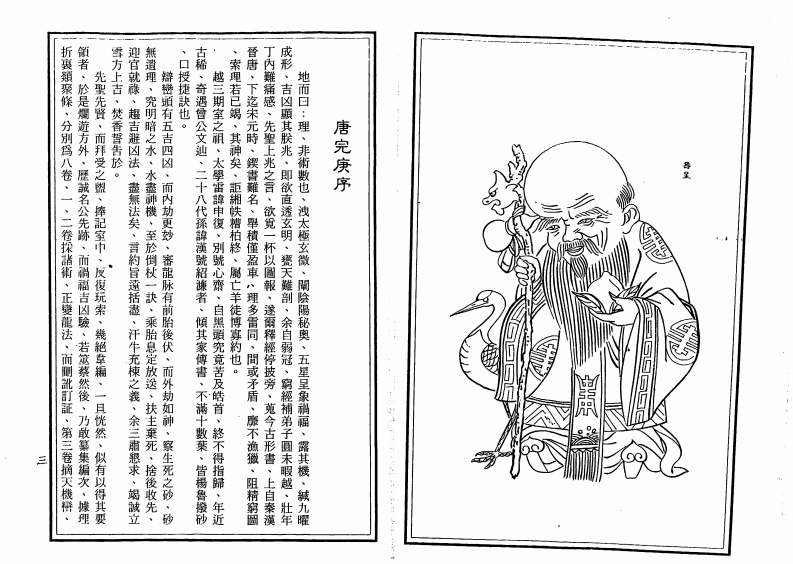 壽星
唐完庚序
地而曰：理、非術數也、洩太極玄微、闡陰陽秘奧、五星呈象禍福、露其機、緘九曜
成形、吉凶顯其朕兆、即欲直透玄明、甕天難剖、余自弱冠、窮經補弟子圓未暇越、壯年
丁內難痛感、先聖上兆之言、欲覓一杯以圖報、遂爾釋經停披旁、蒐今古形書、上自秦漢
晉唐、下迄宋元時、鍥書難名、舉積僅盈車、理多雷同、間或矛盾、靡不漁獵、阻精窮圖
、索理若已竭、其神矣、詎緗帙糟柏終、屬亡羊徒博寡約也。
越三期室之祖、太學雷諱申復、別號心齋、自黑頭究竟苦及皓首、終不得指歸、年近
古稀、奇遇曾公文辿、二十八代孫諱漢號紹濂者、傾其家傳書、不滿十數葉、皆楊魯撥砂
、口授捷訣也。
辯巒頭有五吉四凶、而內劫更玅、審龍脉有前胎後伏、而外劫如神、察生死之砂、砂
無遺理、究明暗之水、水盡神機、至於倒杖一訣、乘胎息定放送、扶主棄死、捨後收先、
迎官就祿、趨吉避凶法、盡無法矣、言約旨遠括盡、汗牛充棟之義、余三肅懇求、竭誠立
雪方上吉、焚香誓告於。
先聖先賢、而拜受之齦、捧記室中、反復玩索、幾絕韋編、一旦恍然、似有以得其要
領者、於是爛遊方外、歷誠名公先跡、而禍福吉凶驗、若筮蔡然後、乃敢纂集編次、據理
折裏類聚條、分別爲八卷、一、二卷採諸術、正變龍法、而刪訛訂証、第三卷摘天機辯、
三